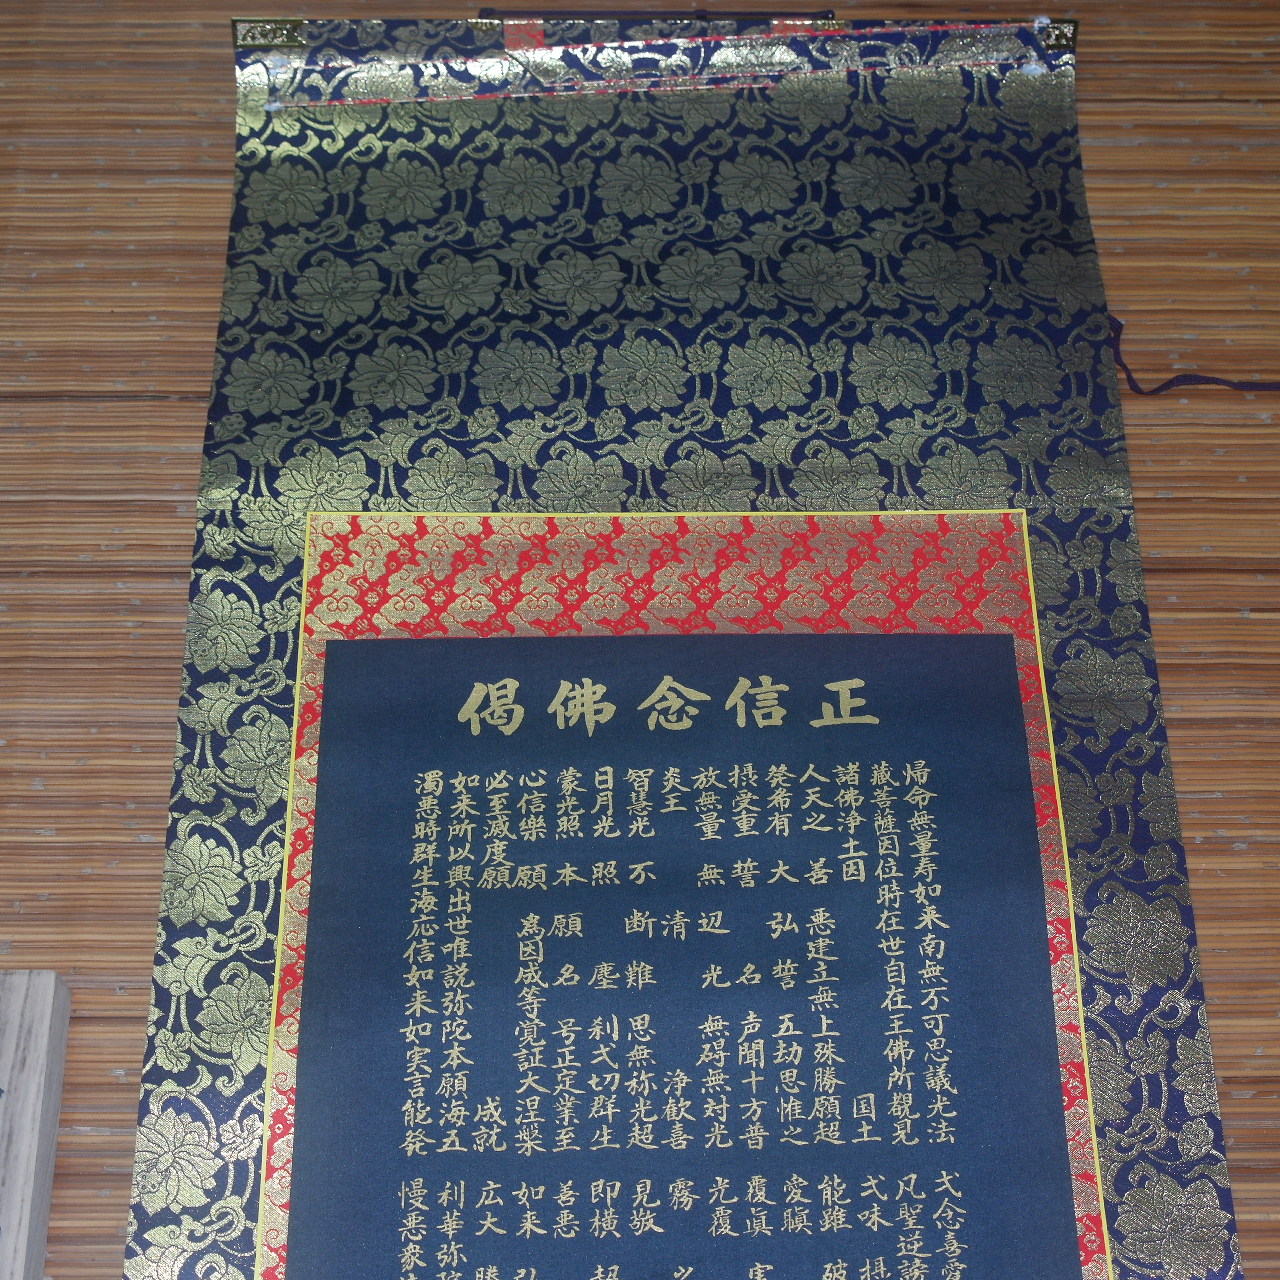 正信念佛偈
帰命無量寿如来南無不可思議光法
藏菩薩因位時在世自在王佛所覩見
諸佛浄土因 国土
人天之善 悪建立無上殊勝願超
発希有大弘誓五劫思惟之
摂受重誓名声聞十方普
放無量無辺光無碍無対光
炎王 清 浄歓喜
智慧光不断難思無称光超
日月光照塵刹弌切群生
蒙光照本願名号正定業至
心信樂願爲因成等覚証大涅槃
必至滅度願 成就
如来所以興出世唯説弥陀本願海五
濁悪時群生海応信如来如実言能発
弌念喜愛
凡聖逆謗
弌味 摂
能雖 破
愛瞋
覆眞 実
光覆
霧
見敬
即横 超
善悪
如来 弘
広大 勝
利華弥陀
慢悪衆生